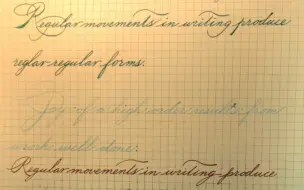 Regular movements in writing produce
reglar regular forms.
Joy of a high order results from
work well done:
Regular movements in writing produce